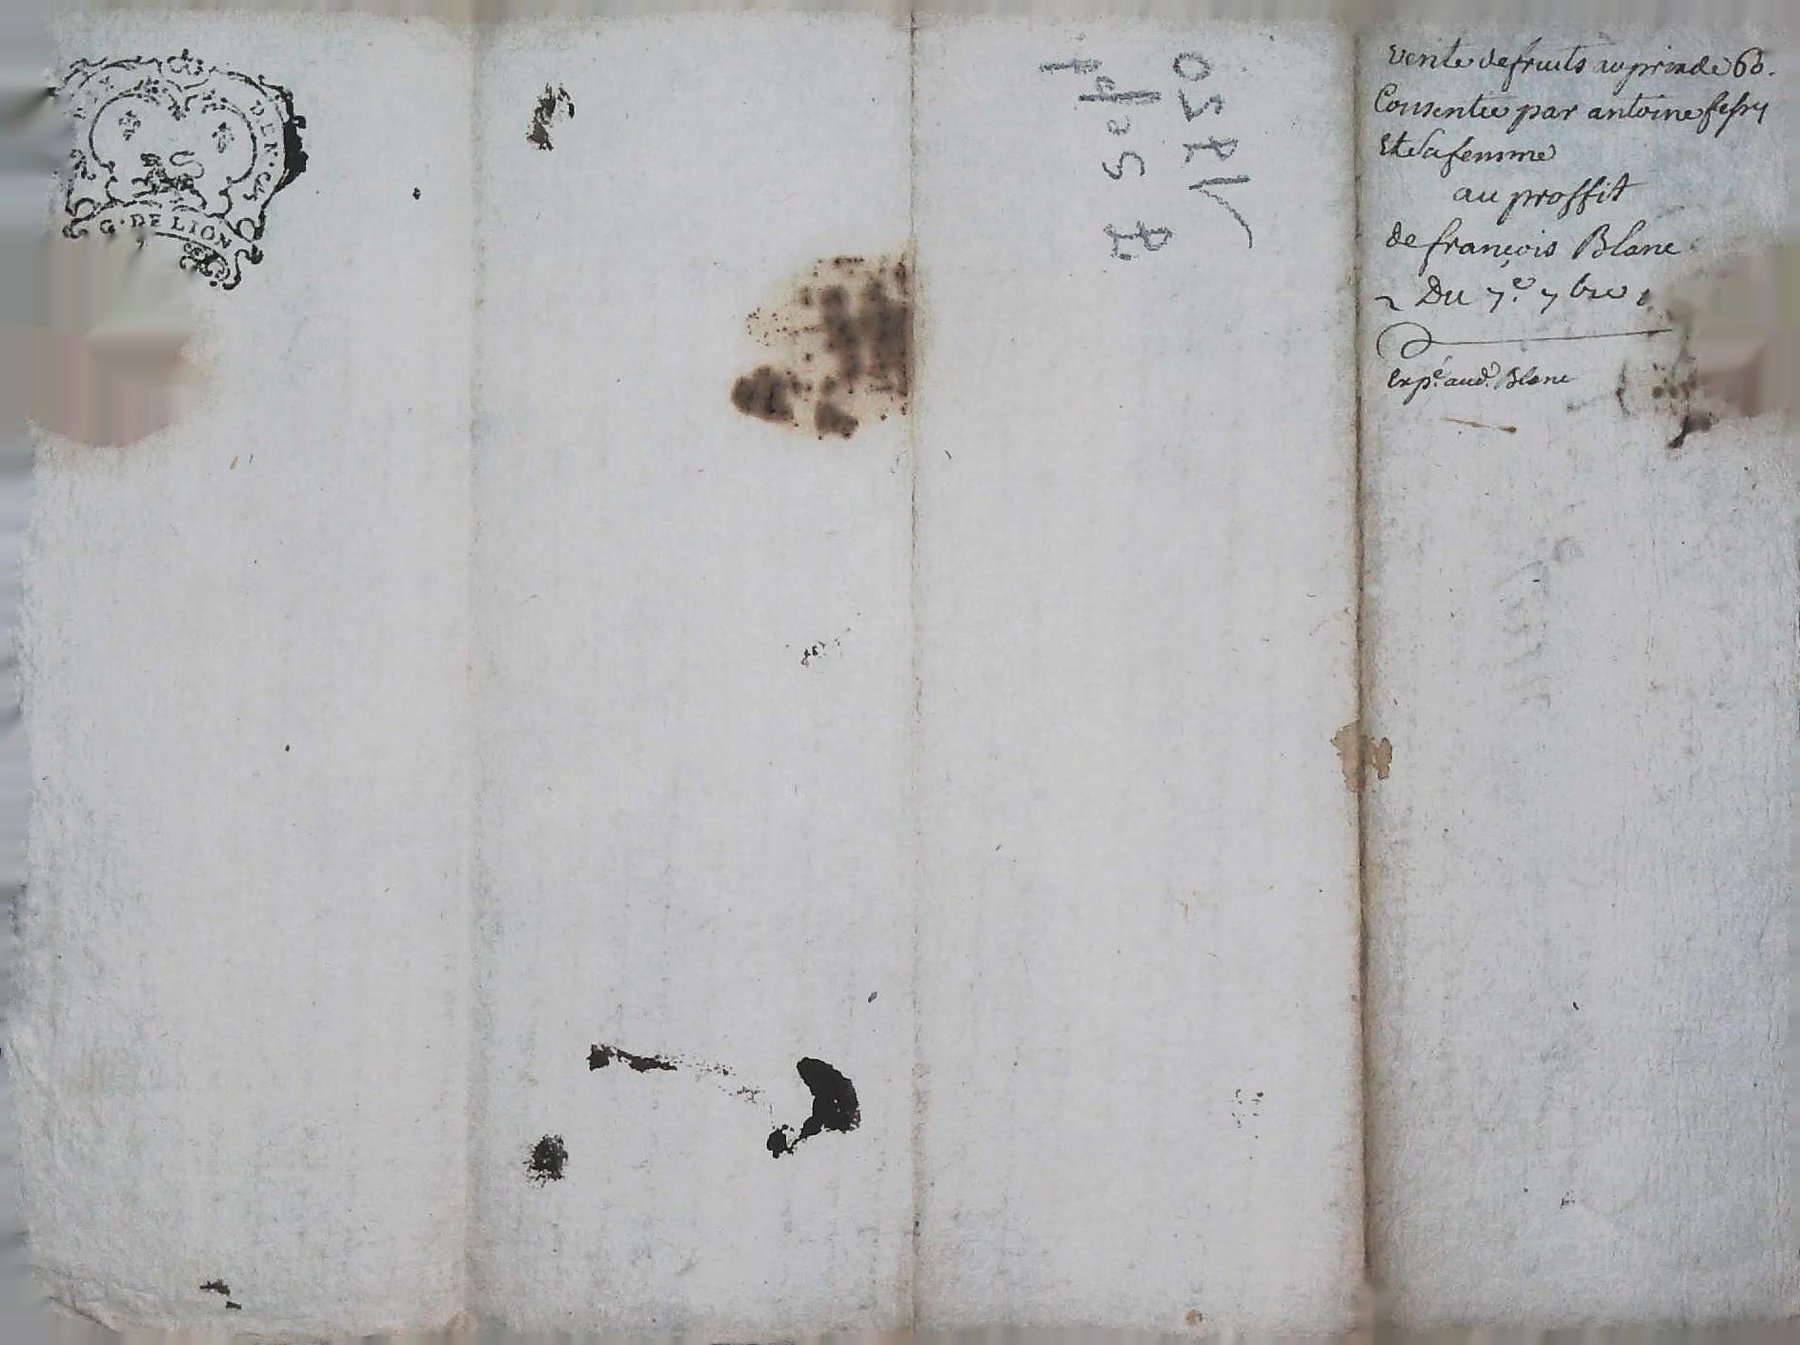 DEN. CAS
G. DE LION
7 Sept
1750
vente de fruits au prix de 60.
Consentie par antoine
Et Sa femme
au proffit
de françois Blanc
Du 7.e 7bre
Expé. aud. Blanc